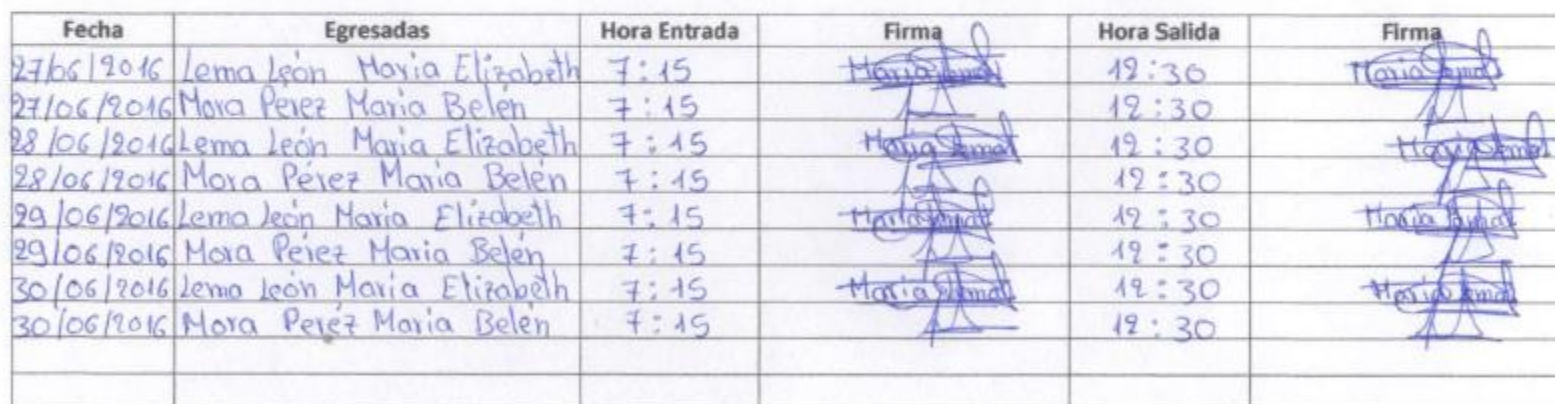 Fecha Egresadas Hora Entrada Firma Hora Salida Firma
27/06/2016 Lema León Maria Elizabeth 7:15 Maria Lema 12:30 Maria Lema
27/06/2016 Mora Pérez Maria Belén 7:15 12:30
28/06/2016 Lema León Maria Elizabeth 7:15 Maria Lema 12:30 Maria Lema
28/06/2016 Mora Pérez Maria Belén 7:15 12:30
29/06/2016 Lema León Maria Elizabeth 7:15 Maria Lema 12:30 Maria Lema
29/06/2016 Mora Pérez Maria Belén 7:15 12:30
30/06/2016 Lema León Maria Elizabeth 7:15 Maria Lema 12:30 Maria Lema
30/06/2016 Mora Peréz Maria Belén 7:15 12:30